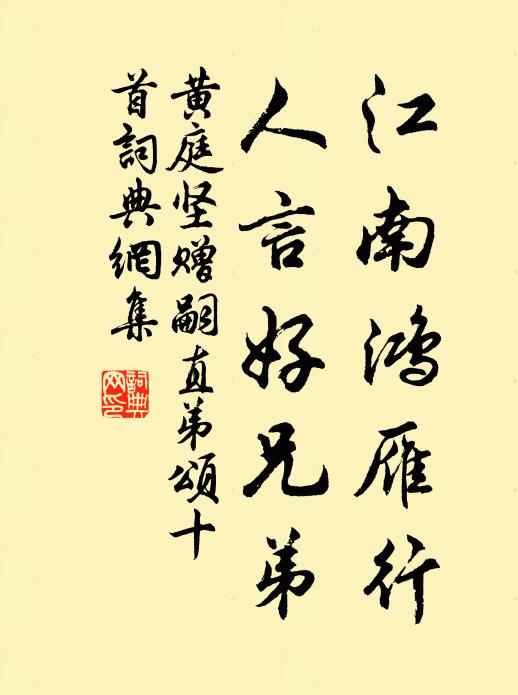 江南鸿雁行
人言好兄弟
黄庭坚赠嗣直弟颂十
首詞典網集
詞典网印